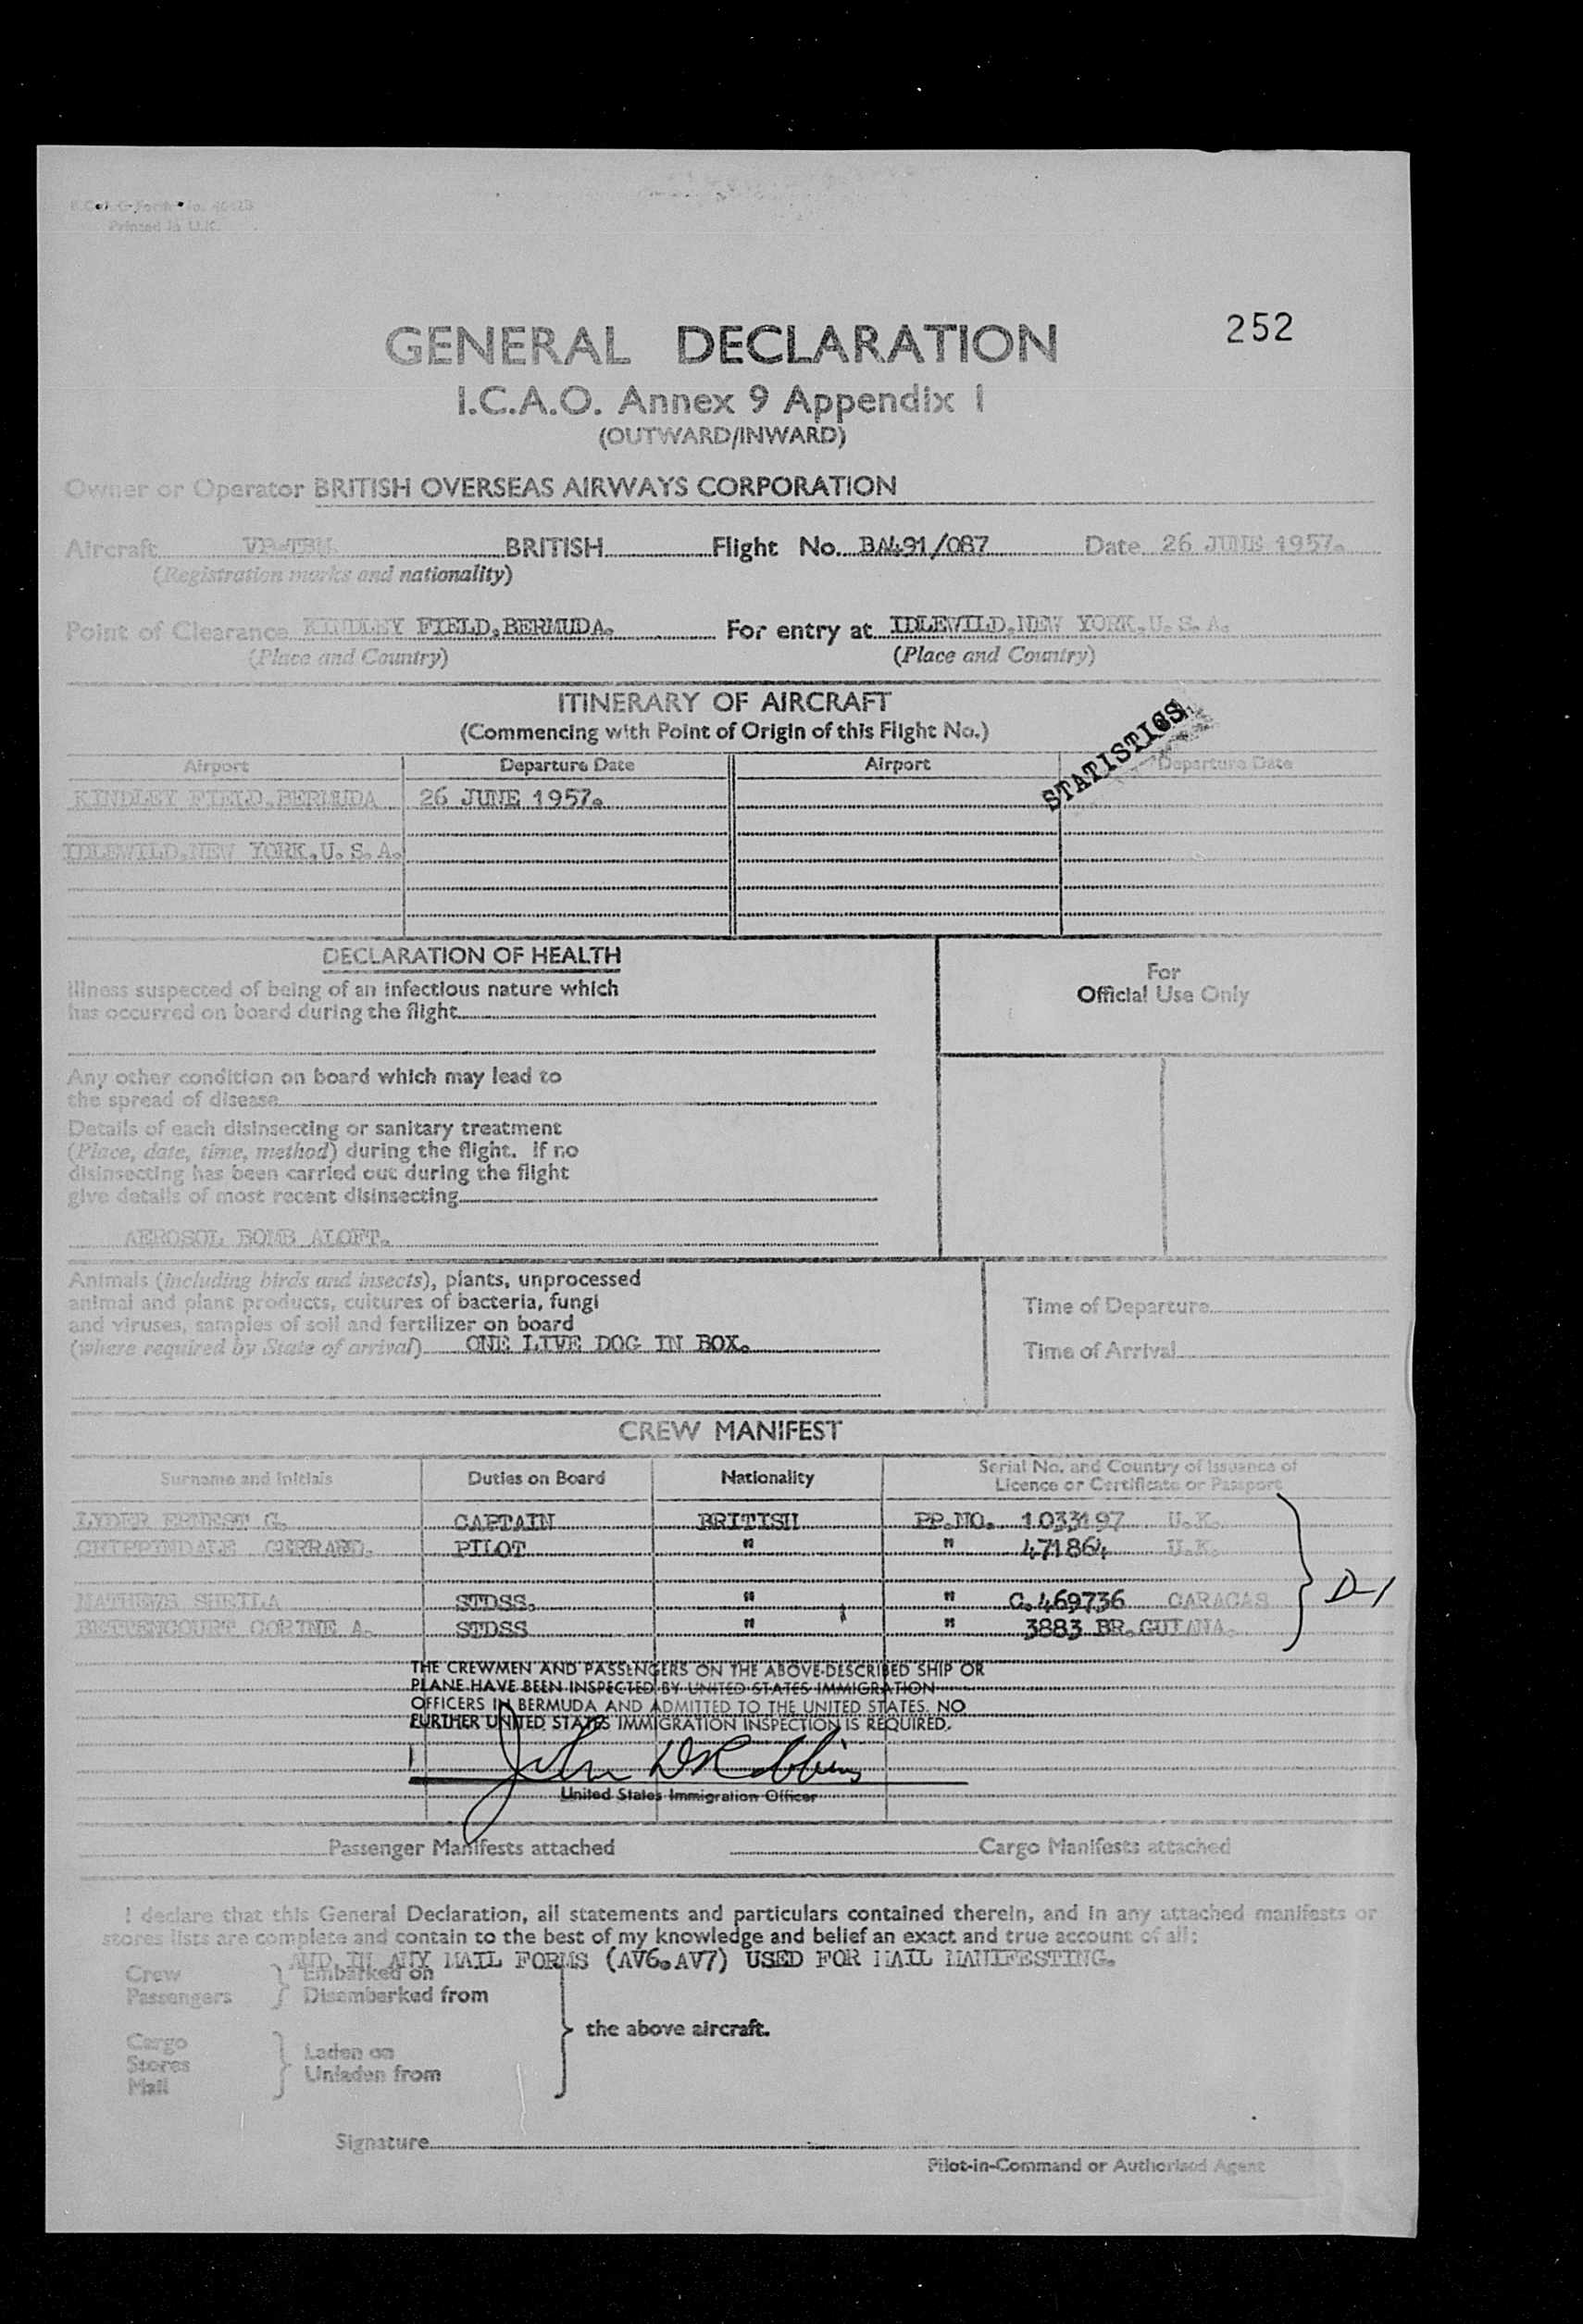 Printed in U.K.
252
GENERAL DECLARATION
I.C.A.O. Annex 9 Appendix 1
(OUTWARD/INWARD)
Owner or Operator BRITISH OVERSEAS AIRWAYS CORPORATION
Aircraft BRITISH Flight No. BA491/087 Date 26 JUNE 1957.
(Registration marks and nationality)
Point of Clearance KINDLEY FIELD, BERMUDA. For entry at IDLEWILD, NEW YORK, U.S.A.
(Place and Country) (Place and Country)
ITINERARY OF AIRCRAFT
(Commencing with Point of Origin of this Flight No.)
STATISTICS
Airport Departure Date Airport Departure Date
KINDLEY FIELD, BERMUDA 26 JUNE 1957.
IDLEWILD, NEW YORK, U.S.A.
DECLARATION OF HEALTH
For
Official Use Only
Illness suspected of being of an infectious nature which
has occurred on board during the flight
Any other condition on board which may lead to
the spread of disease
Details of each disinsecting or sanitary treatment
(Place, date, time, method) during the flight. If no
disinsecting has been carried out during the flight
give details of most recent disinsecting
AEROSOL BOMB ALOFT.
Animals (including birds and insects), plants, unprocessed
animal and plant products, cultures of bacteria, fungi
and viruses, samples of soil and fertilizer on board
(where required by State of arrival) ONE LIVE DOG IN BOX.
Time of Departure
Time of Arrival
CREW MANIFEST
Surname and Initials Duties on Board Nationality Serial No. and Country of Issuance of
Licence or Certificate or Passport
LYDER ERNEST G. CAPTAIN BRITISH PP.NO. 1033197 U.K.
CHIPPINDALE GERRARD. PILOT " " 471864 U.K.
MATHEWS SHEILA STDSS. " " C.469736 CARACAS
BETTENCOURT CORINE A. STDSS " " 3883 BR.GUIANA.
D-1
THE CREWMEN AND PASSENGERS ON THE ABOVE-DESCRIBED SHIP OR
PLANE HAVE BEEN INSPECTED BY UNITED STATES IMMIGRATION
OFFICERS IN BERMUDA AND ADMITTED TO THE UNITED STATES. NO
FURTHER UNITED STATES IMMIGRATION INSPECTION IS REQUIRED.
John D Robbins
United States Immigration Officer
Passenger Manifests attached Cargo Manifests attached
I declare that this General Declaration, all statements and particulars contained therein, and in any attached manifests or
stores lists are complete and contain to the best of my knowledge and belief an exact and true account of all:
AND IN ANY MAIL FORMS (AV6.AV7) USED FOR MAIL MANIFESTING.
Crew Embarked on
Passengers Disembarked from
the above aircraft.
Cargo
Stores Laden on
Mail Unladen from
Signature
Pilot-in-Command or Authorised Agent